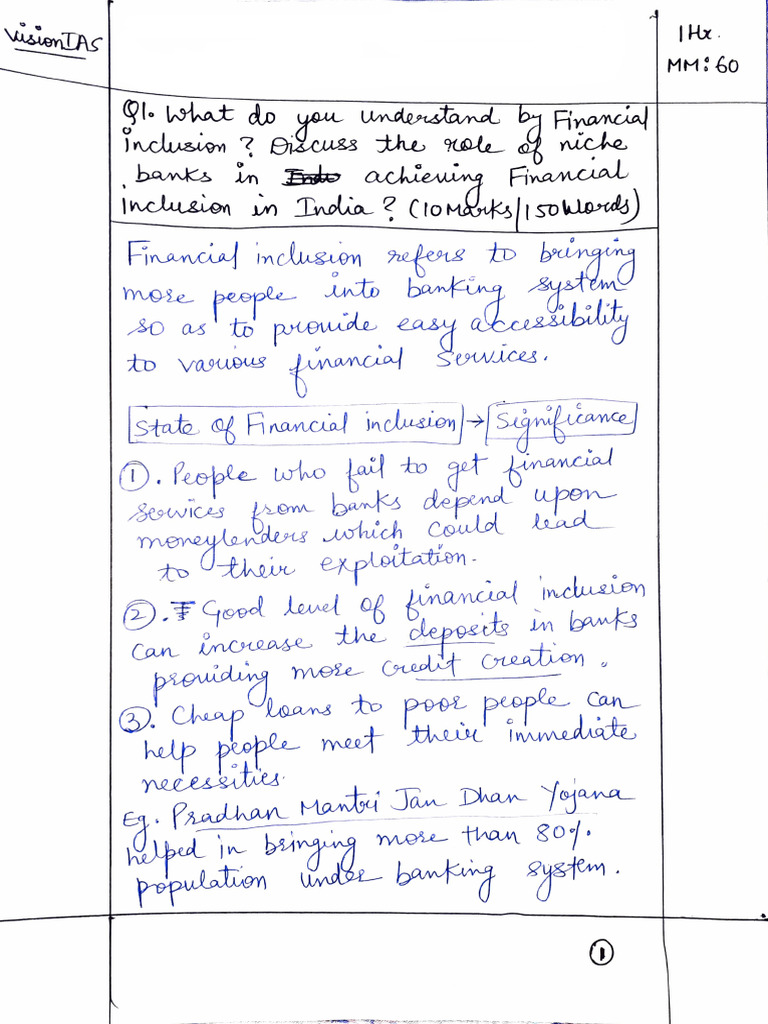 VisionIAS
1 Hr.
MM: 60
Q1. What do you understand by Financial
inclusion? Discuss the role of niche
banks in achieving Financial
inclusion in India? (10 Marks/150 Words)
Financial inclusion refers to bringing
more people into banking system
so as to provide easy accessibility
to various financial services.
State of Financial inclusion → Significance
①. People who fail to get financial
services from banks depend upon
moneylenders which could lead
to their exploitation.
②. Good level of financial inclusion
can increase the deposits in banks
providing more credit creation.
③. Cheap loans to poor people can
help people meet their immediate
necessities.
Eg. Pradhan Mantri Jan Dhan Yojana
helped in bringing more than 80%
population under banking system.
①